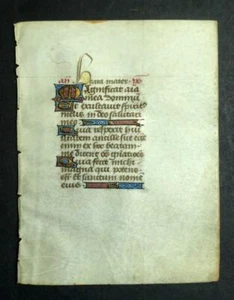 an Beata mater. ps
Magnificat aia
mea dominu
Et exultavit spiritus
meus in deo salutari
meo
Quia respexit hu
militatem ancille sue ecce
enim ex hoc beatam
me dicent oes gnatioes
Quia fecit michi
magna qui potens
est et sanctum nome
eius